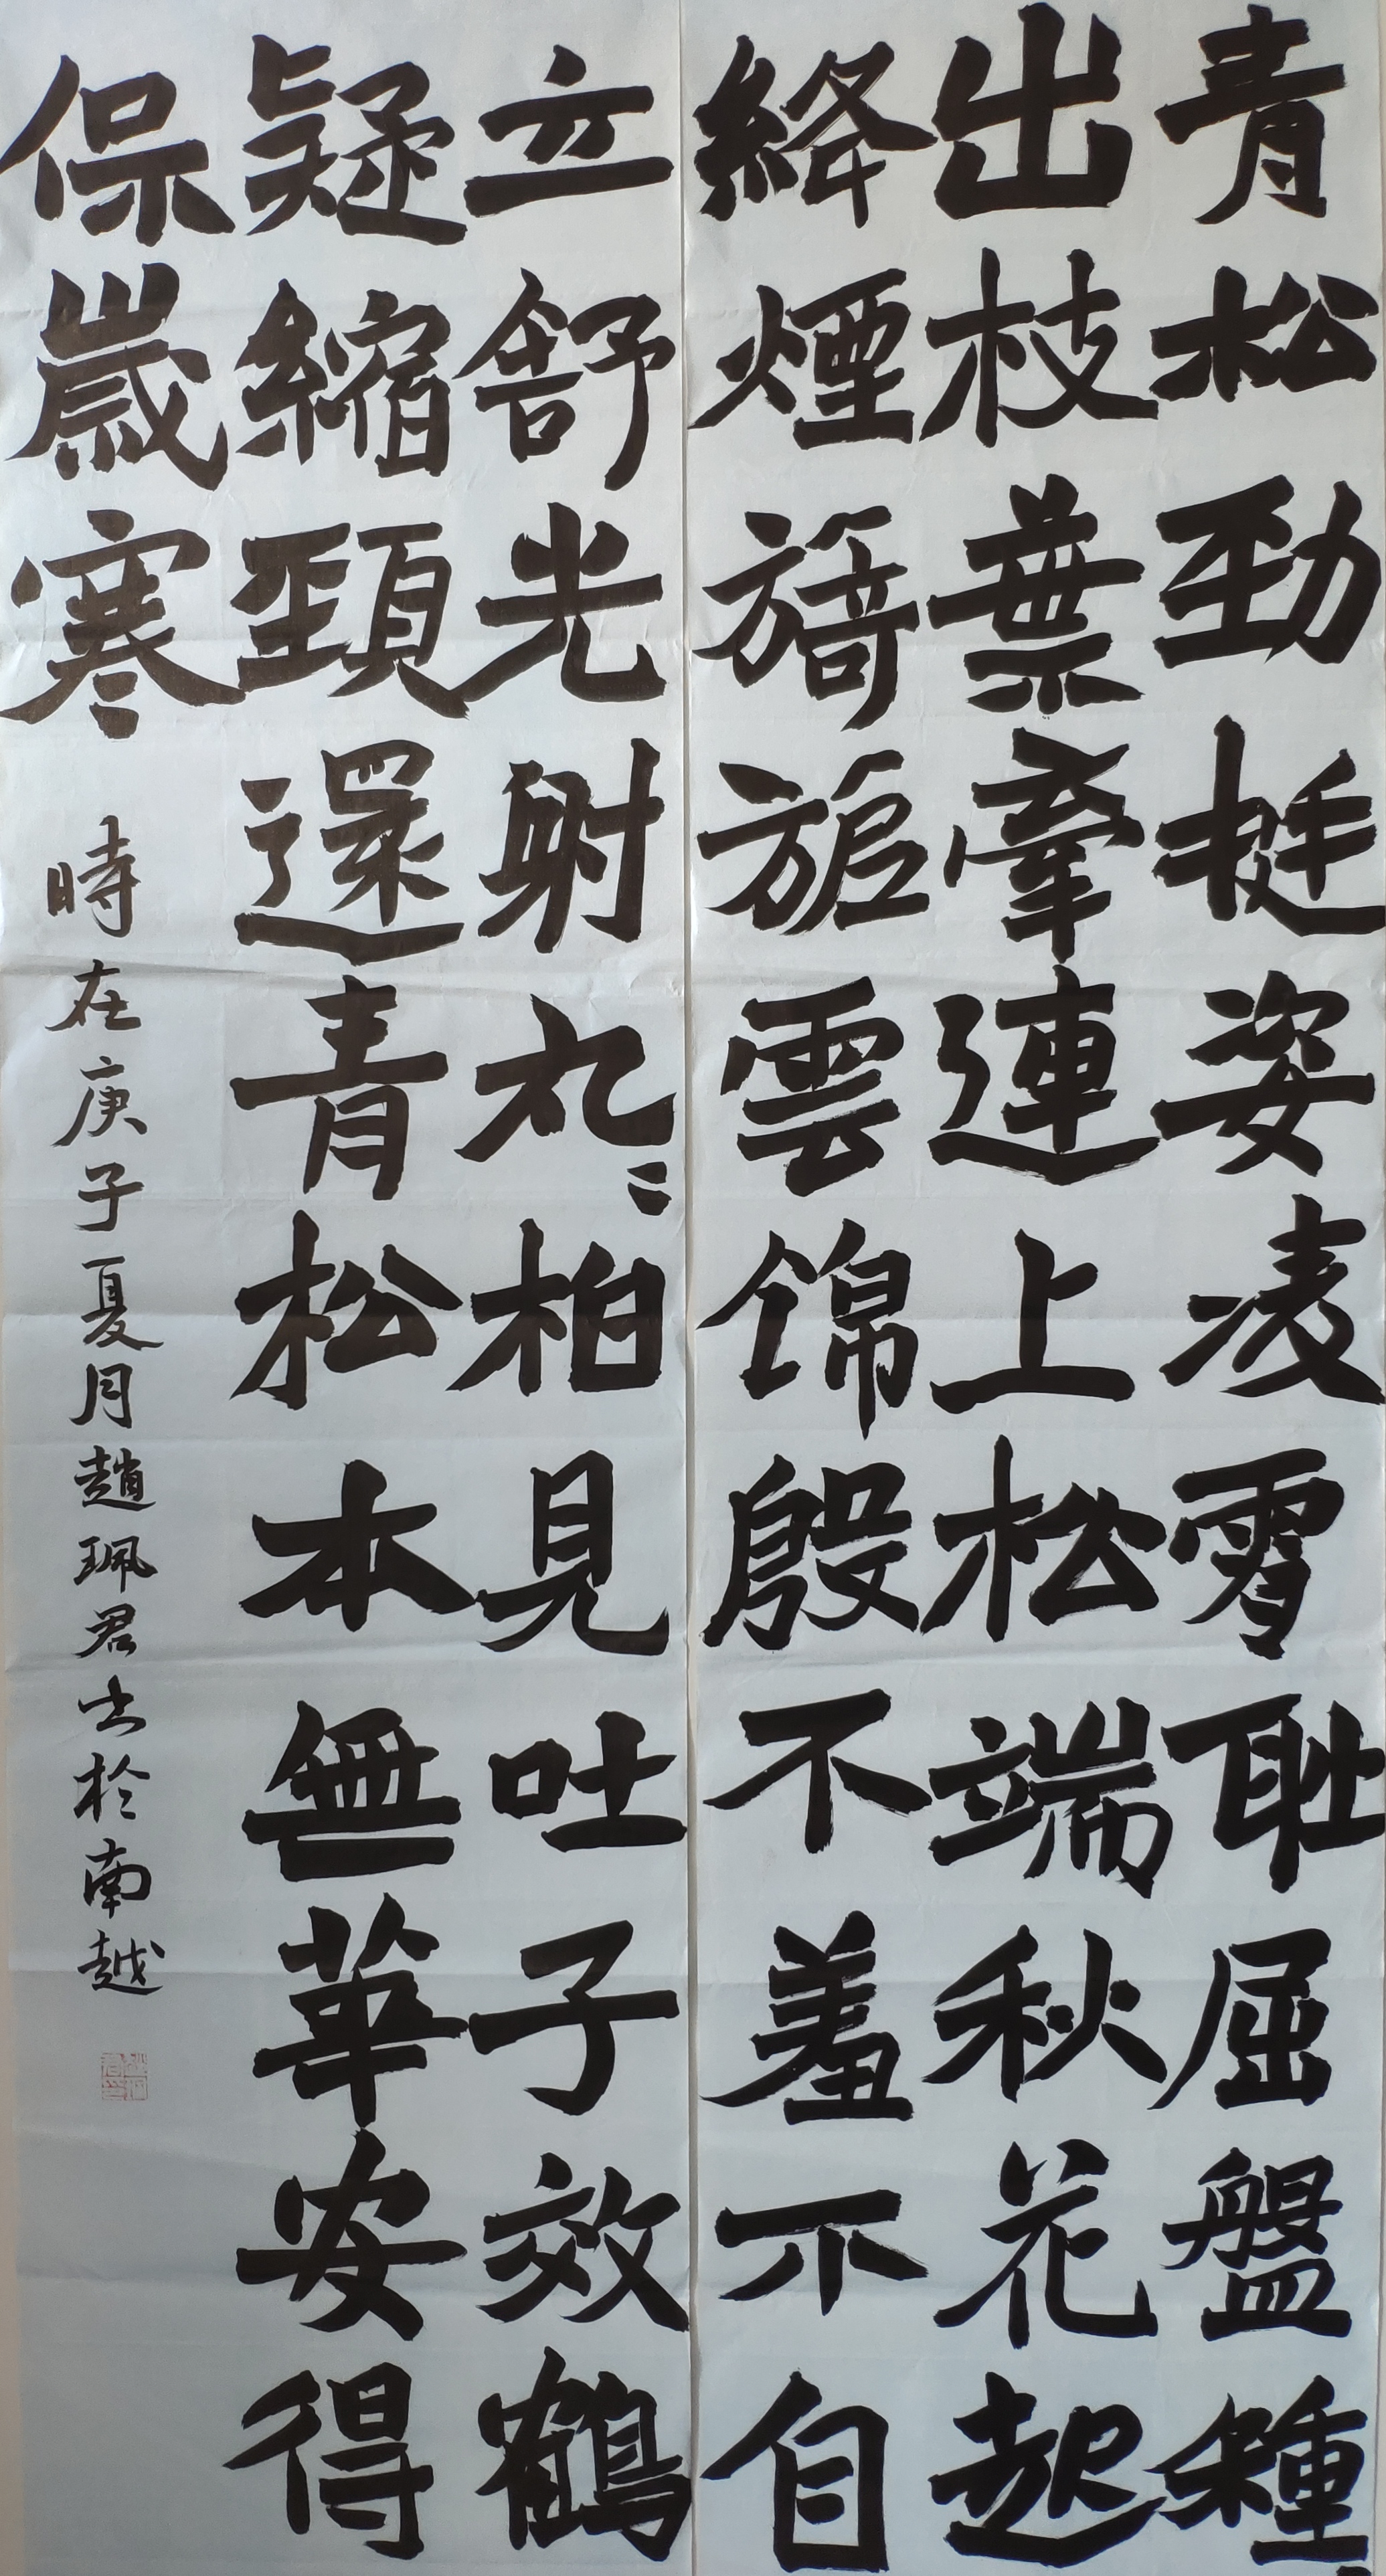 青松勁挺姿凌霄恥屈盤種〻
出枝葉牽連上松端秋花起
絳煙旖旎雲錦殷不羞不自
立舒光射丸〻柏見吐子效鶴
疑縮頸還青松本無華安得
保歲寒
時在庚子夏月趙珮君書於南越